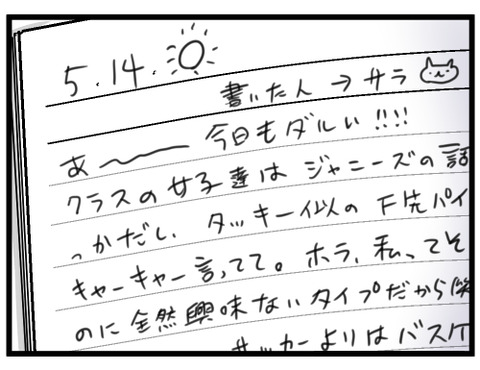 5.14.
書いた人→サラ
あ〜 今日もダルい!!!!
クラスの女子達はジャニーズの話
っかだし、タッキー似の下先パイ
キャーキャー言ってて。ホラ、私ってそ
のに全然興味ないタイプだから笑
サッカーよりはバスケ